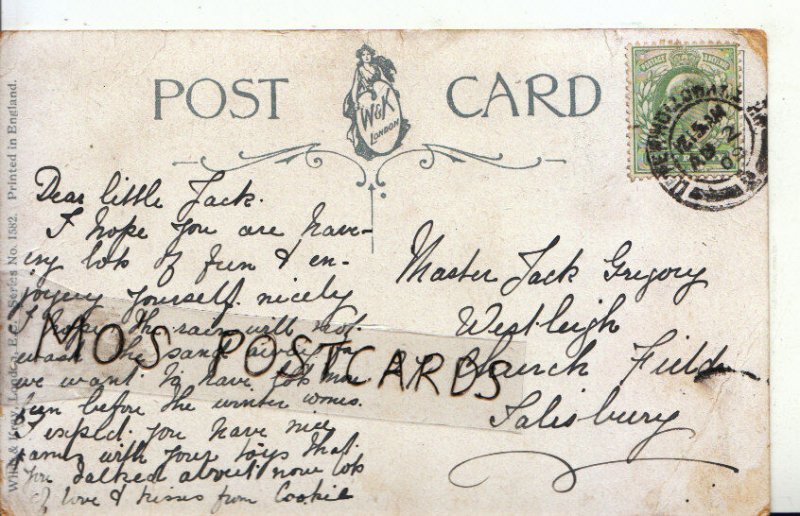 POST CARD
W&K
LONDON
Dear little Jack.
I hope you are hav-
ing lots of fun & en-
joying yourself nicely
I hope the rain will not
wash the sand away for
we want to have lots more
fun before the winter comes.
I expect you have nice
games with your toys that
you talked about now lots
of love & kisses from Cookie
Master Jack Gregory
Westleigh
Church Fields
Salisbury
MOS POSTCARDS
Series No. 1582. Printed in England.
POSTAGE